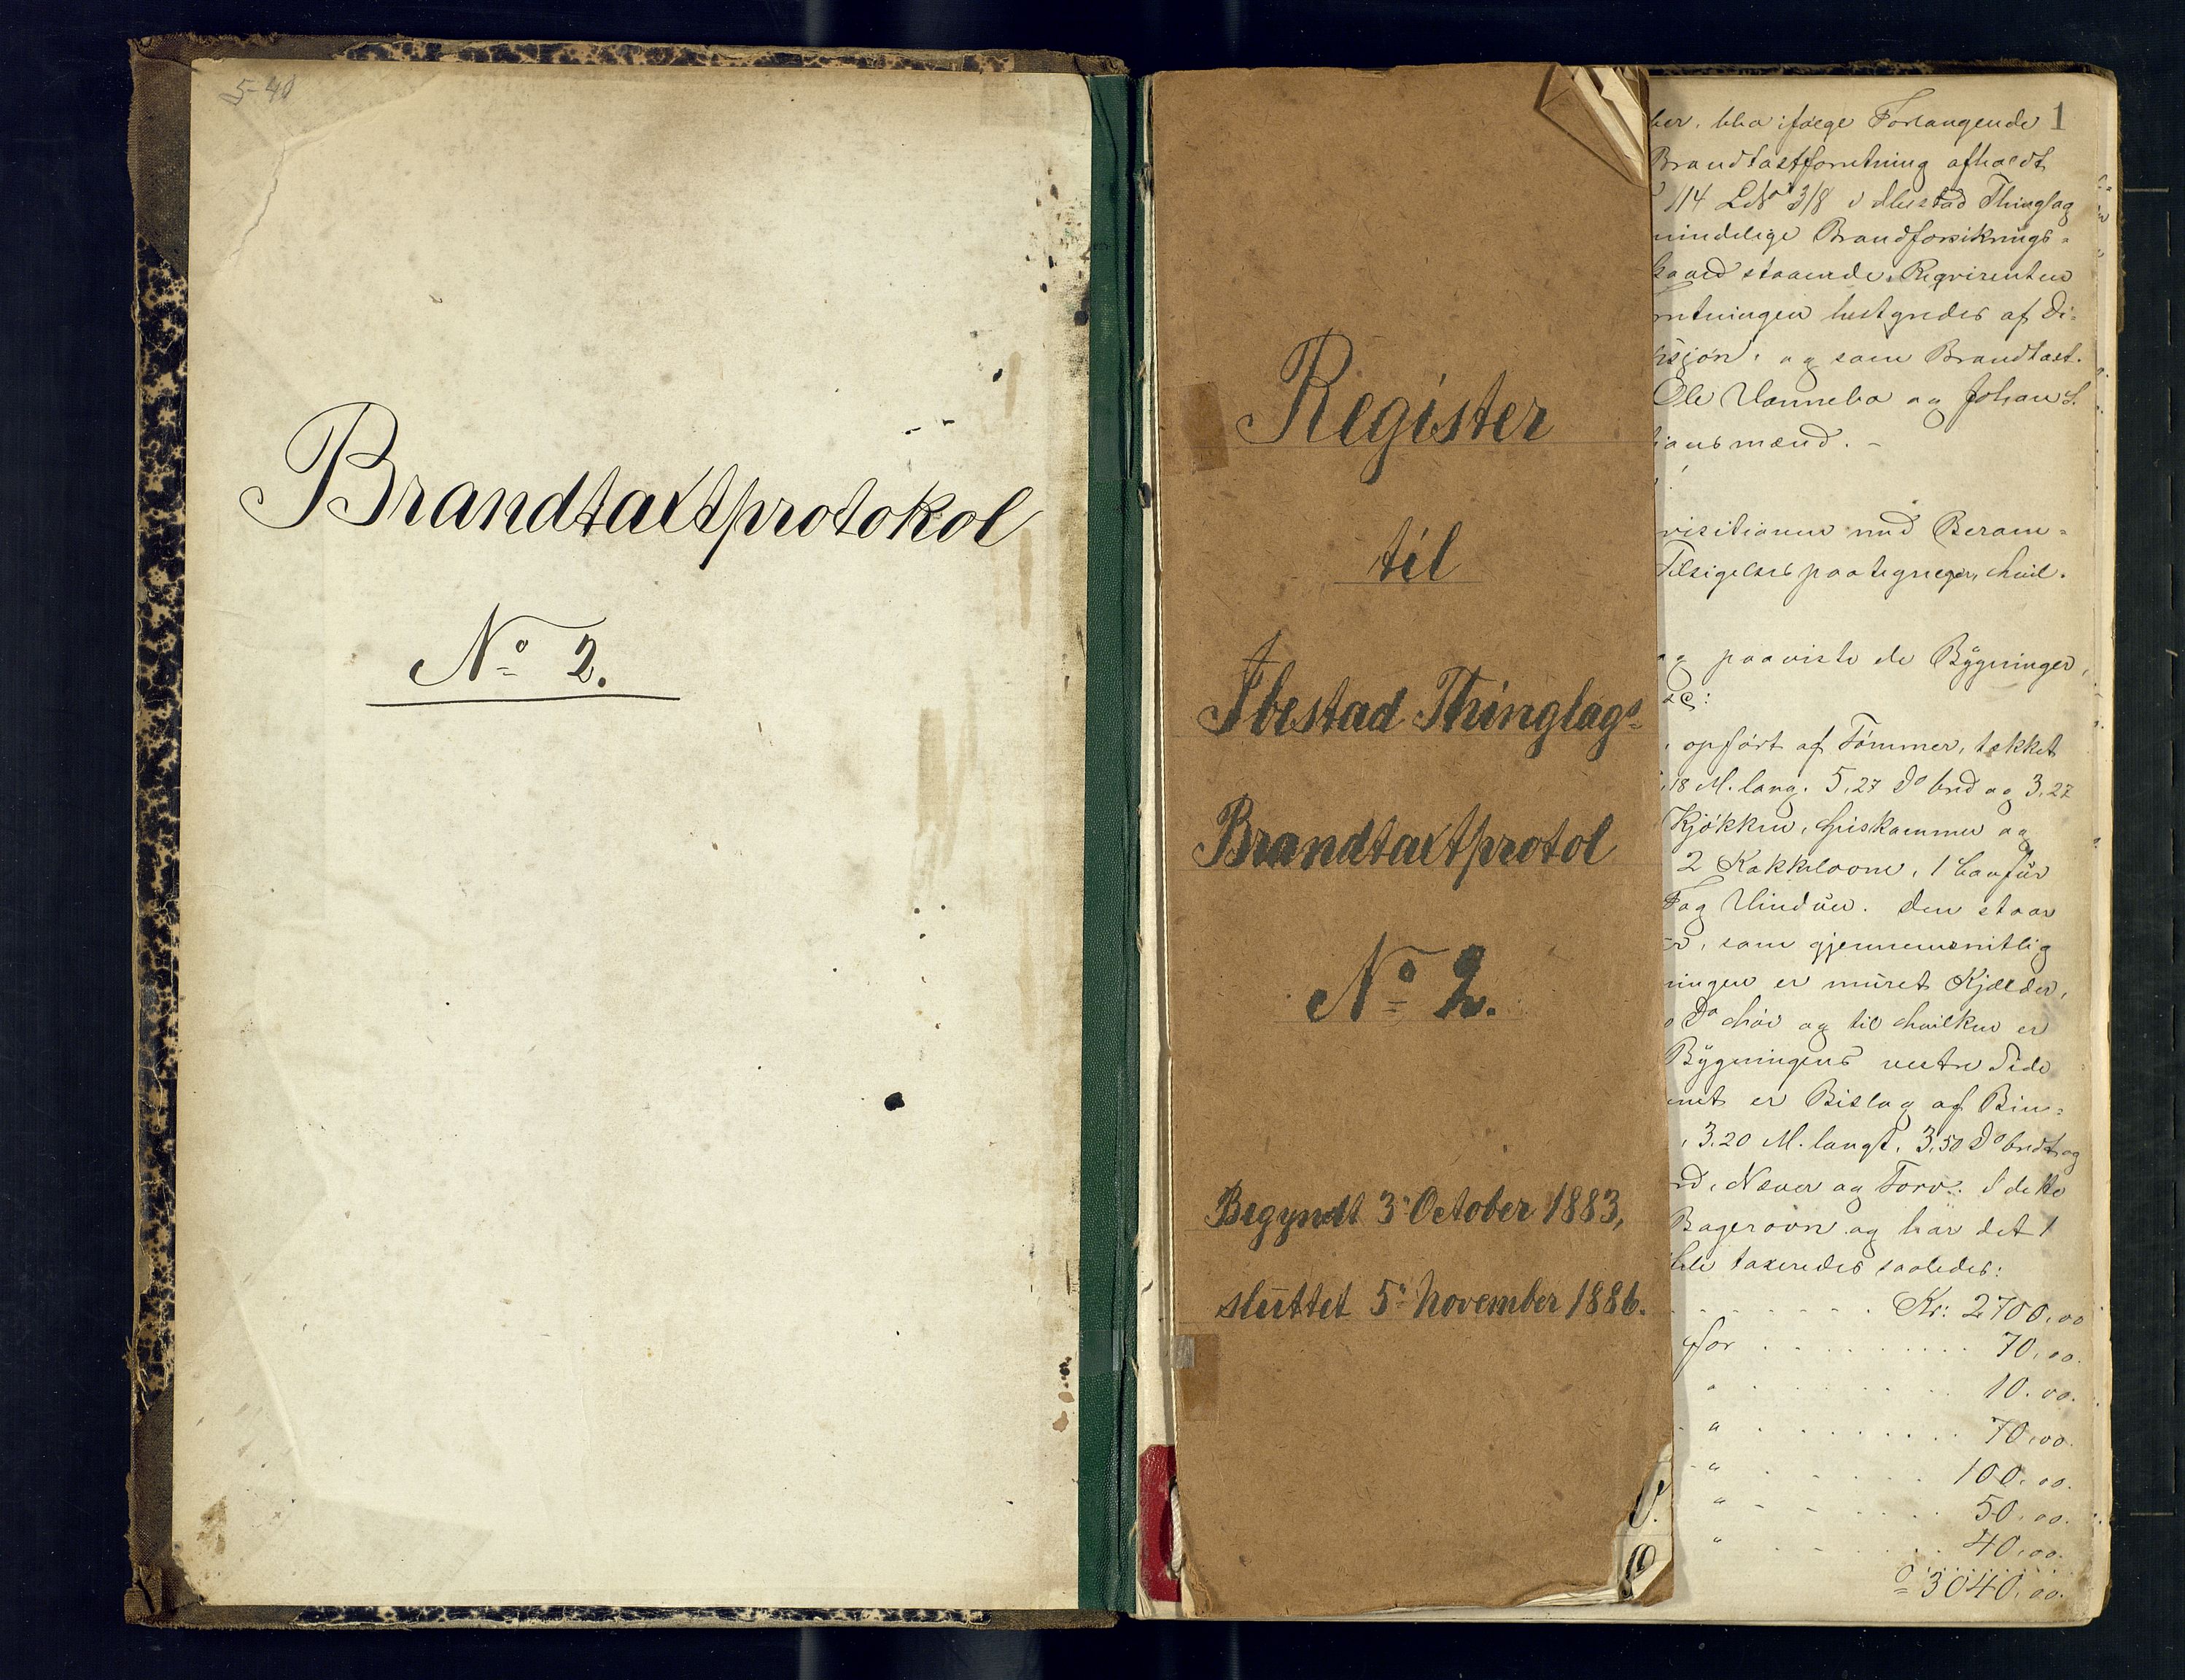 5-40
Brandtaxtprotokol
No 2.
Register
til
Ibestad Thinglags-
Brandtaxtprotol
No 2.
Begyndt 3. October 1883,
sluttet 5. November 1886.
1
ifølge Forlangende
Brandtaxtforretning afholdt
114 LNo 318 i Ibestad Thinglag
mindelige Brandforsikrings-
staaende. Reqvirenten
rretningen bestyredes af Di-
og som Brandtaxt-
Ole Vanneba og Johan S.
mænd. -
visitionen med Beram-
Tilsigelsespaategninger, hvil-
og paaviste de Bygninger,
opført af Tømmer, tækket
18 M. lang. 5,27 Do bred og 3,27
Kjøkken, Spiskammer og
2 Kakkelovne, 1 Comfür
Fag Vinduer. Den staar
som gjennemsnitlig
ningen er muret Kjælder,
Do høi og til hvilken er
Bygningens vestre Side
er Bislag af Bin-
3.20 M. langt. 3,50 Do bredt og
Næver og Torv. I dette
Bagerovn og har det 1
taxeredes saaledes:
Kr: 2700,00
for 70,00.
" 10.00.
" 70,00.
" 100,00.
" 50,00.
" 40,00.
3040,00.